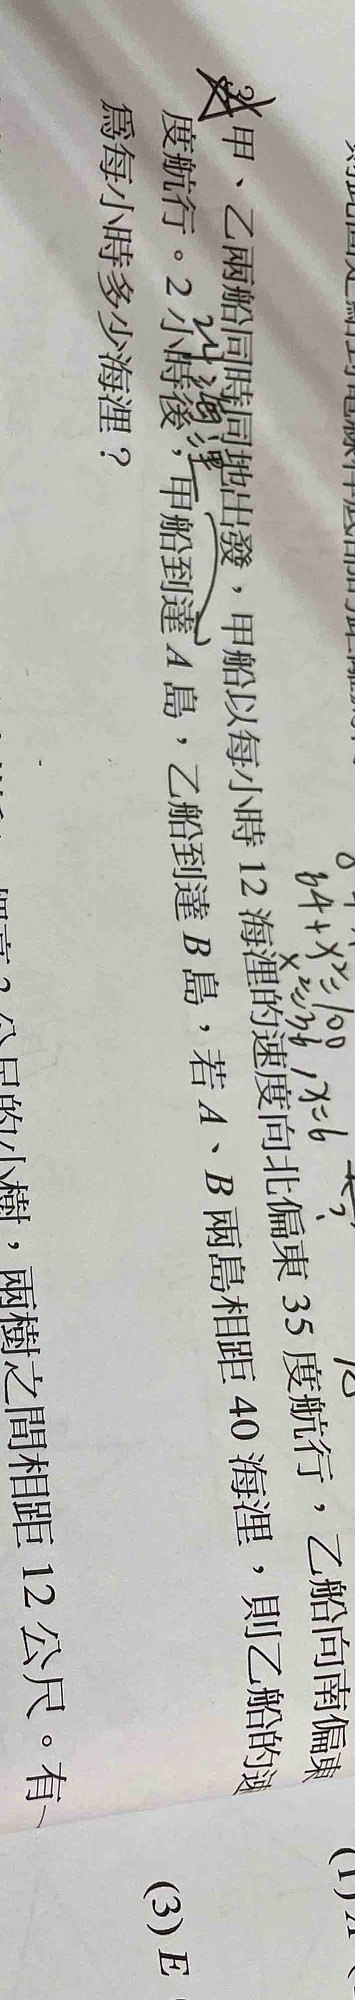 64+x²=100
x²=36，x=6
甲、乙兩船同時同地出發，甲船以每小時 12 海浬的速度向北偏東 35 度航行，乙船向南偏東
24海浬
度航行。2 小時後，甲船到達 A 島，乙船到達 B 島，若 A、B 兩島相距 40 海浬，則乙船的速
爲每小時多少海浬？
公尺的小樹，兩樹之間相距 12 公尺。有一
(1)
(3) E